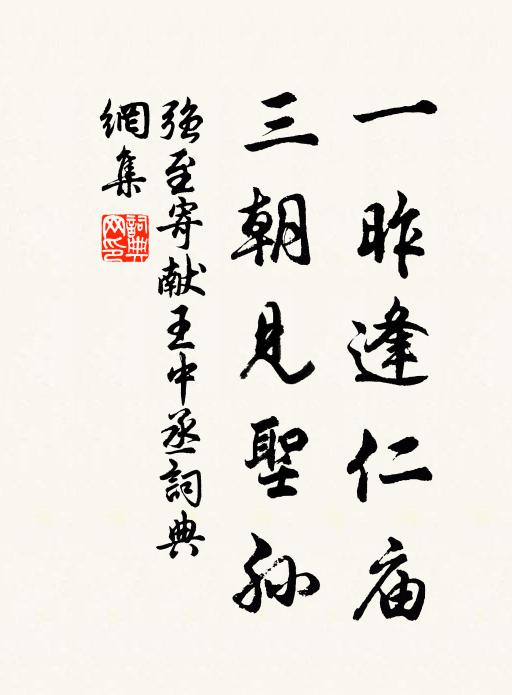 一昨逢仁庙
三朝見聖孙
强至寄献王中丞詞典
網集
詞典网印